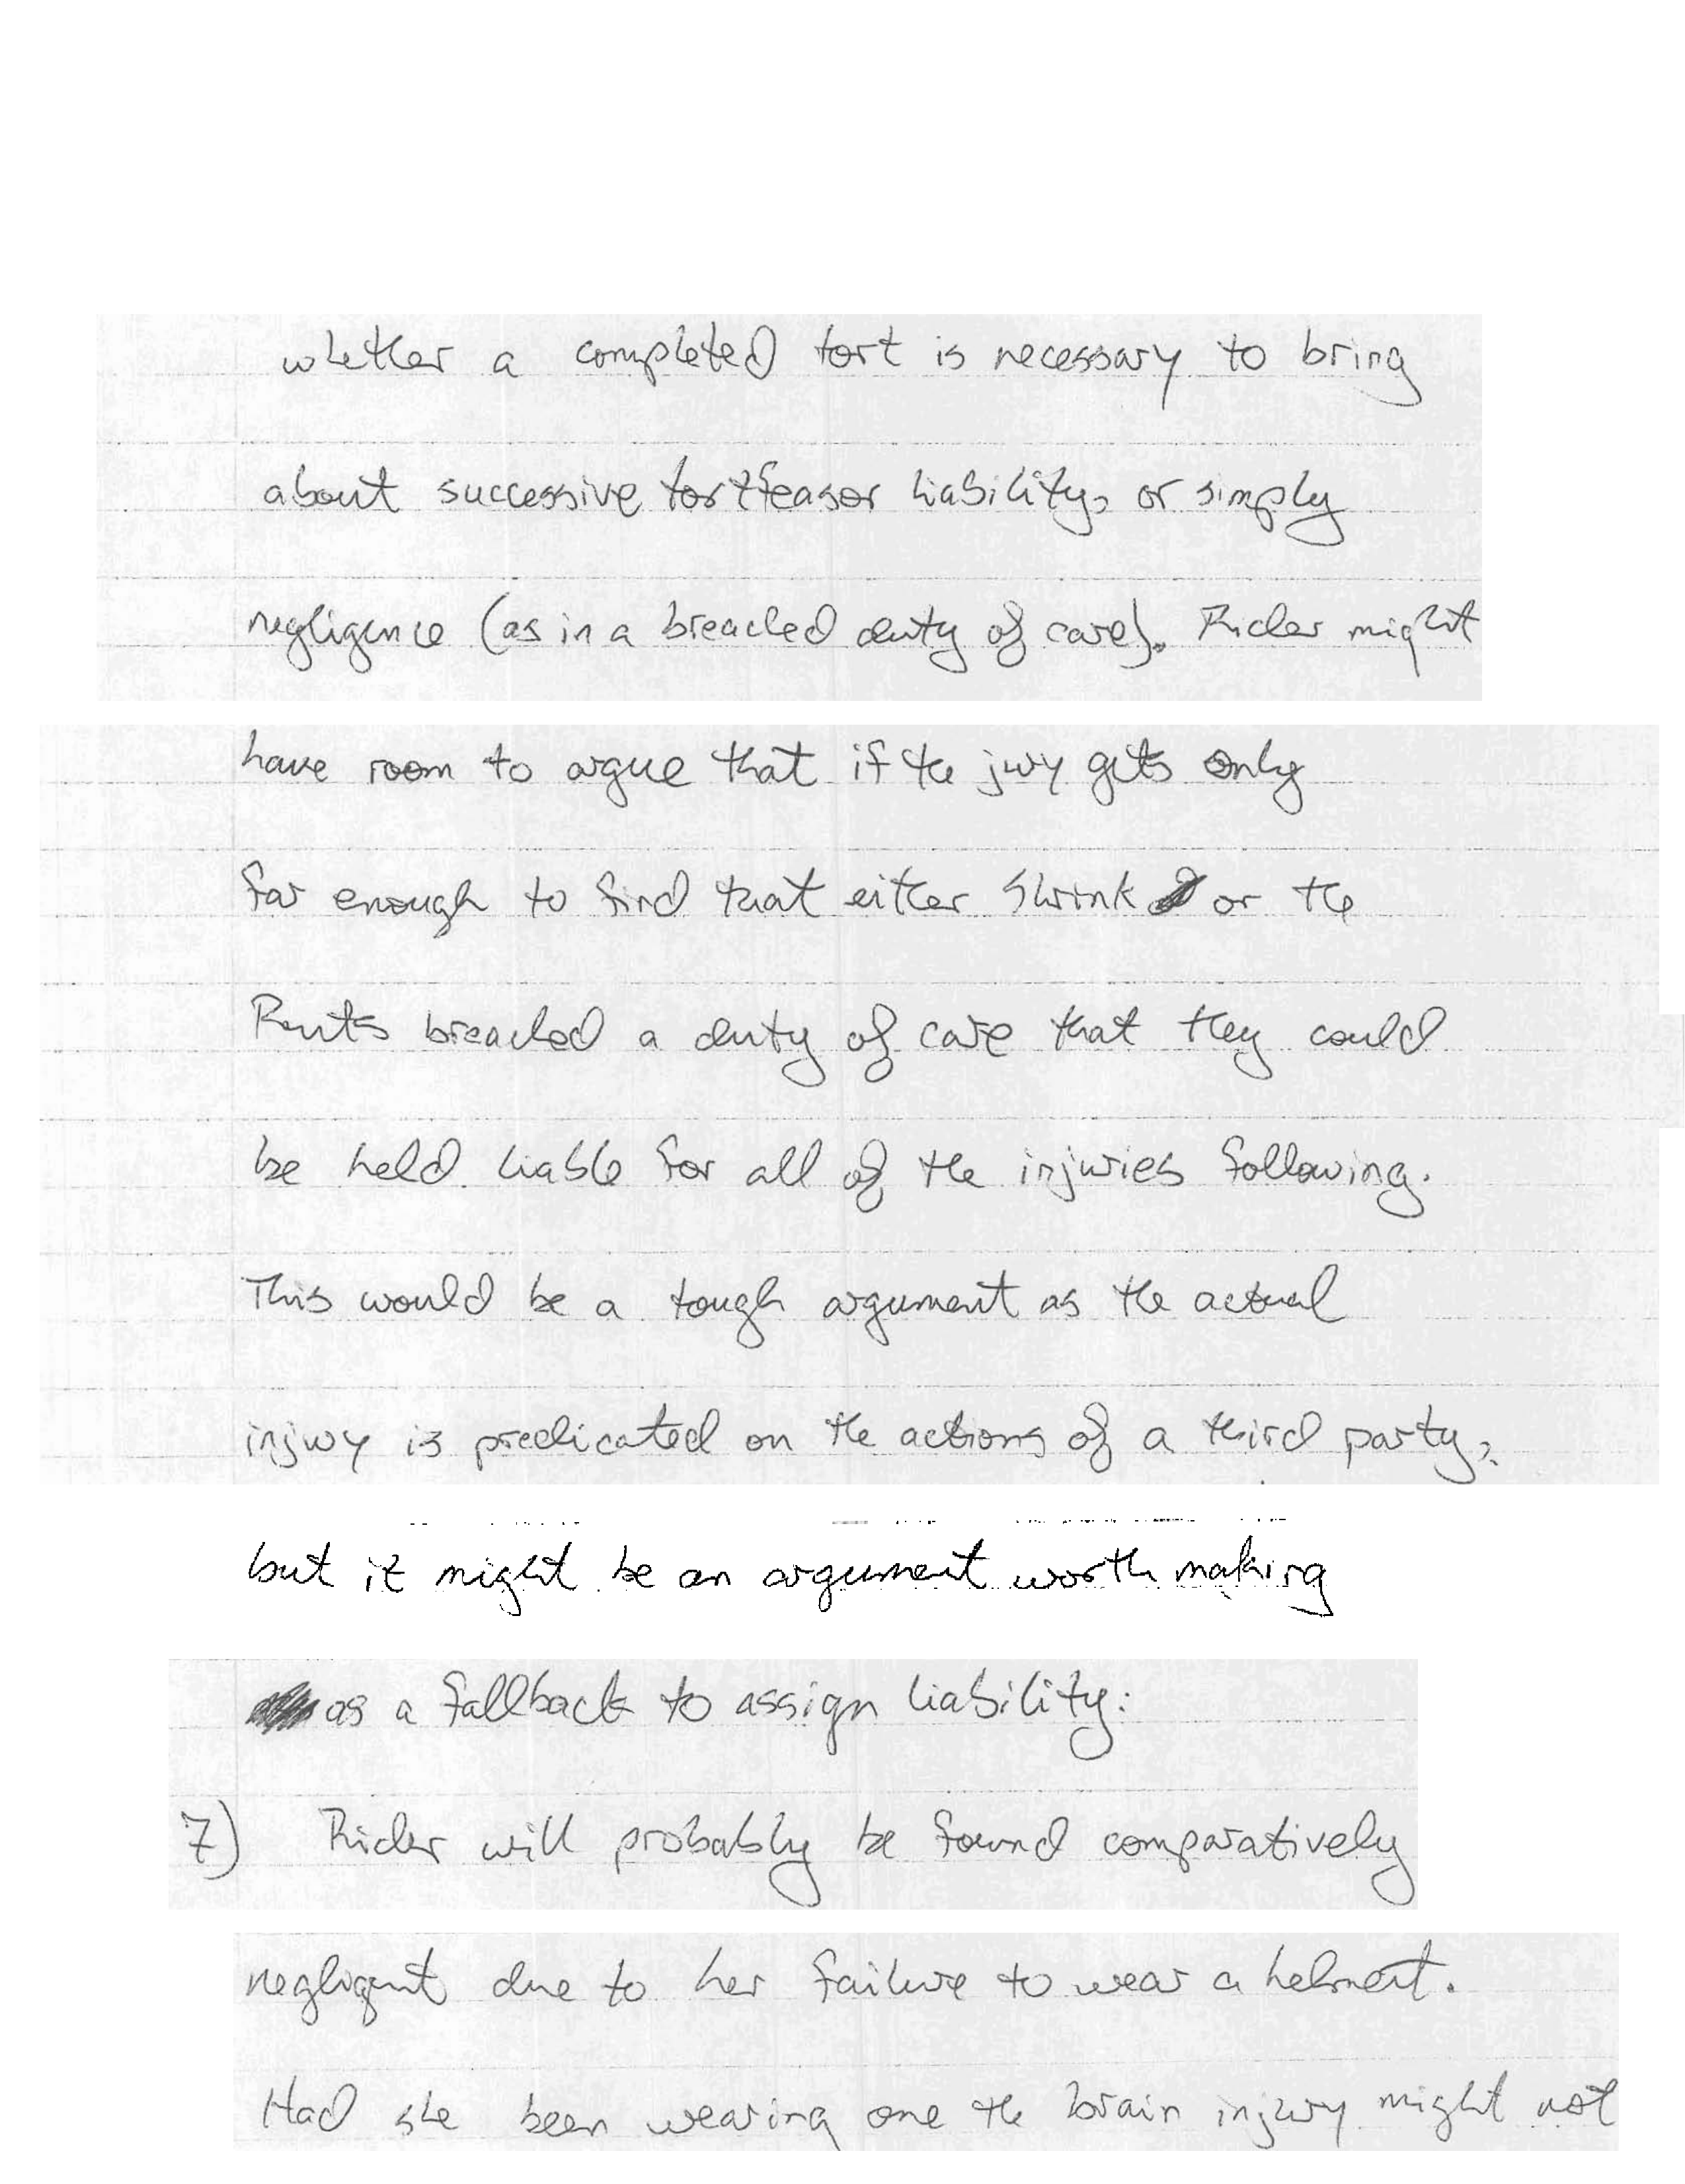 whether a completed tort is necessary to bring
about successive tortfeasor liability, or simply
negligence (as in a breached duty of care). Rider might
have room to argue that if the jury gets only
far enough to find that either Shrink or the
Rents breached a duty of care that they could
be held liable for all of the injuries following.
This would be a tough argument as the actual
injury is predicated on the actions of a third party,
but it might be an argument worth making
as a fallback to assign liability.
7) Rider will probably be found comparatively
negligent due to her failure to wear a helment.
Had she been wearing one the brain injury might not